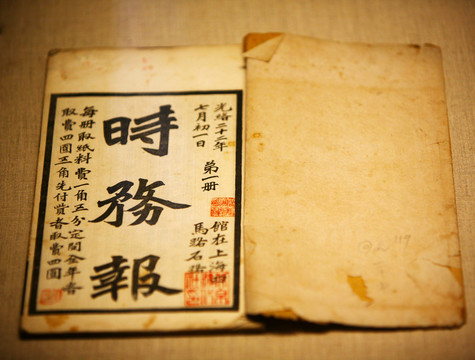 光緒二十二年
七月初一日
第一册
館在上海四
馬路石路
時務報
每册取紙料費一角五分定閱全年者
取費四圓五角先付資者取費四圓